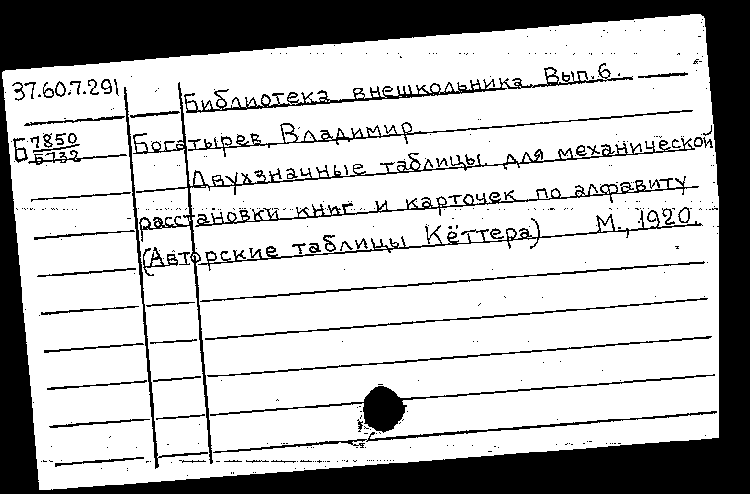 37.60.7.291
Библиотека внешкольника. Вып. 6.
Б 7850
Б732
Богатырев, Владимир.
Двухзначные таблицы для механической
расстановки книг и карточек по алфавиту
(Авторские таблицы Кёттера) М., 1920.